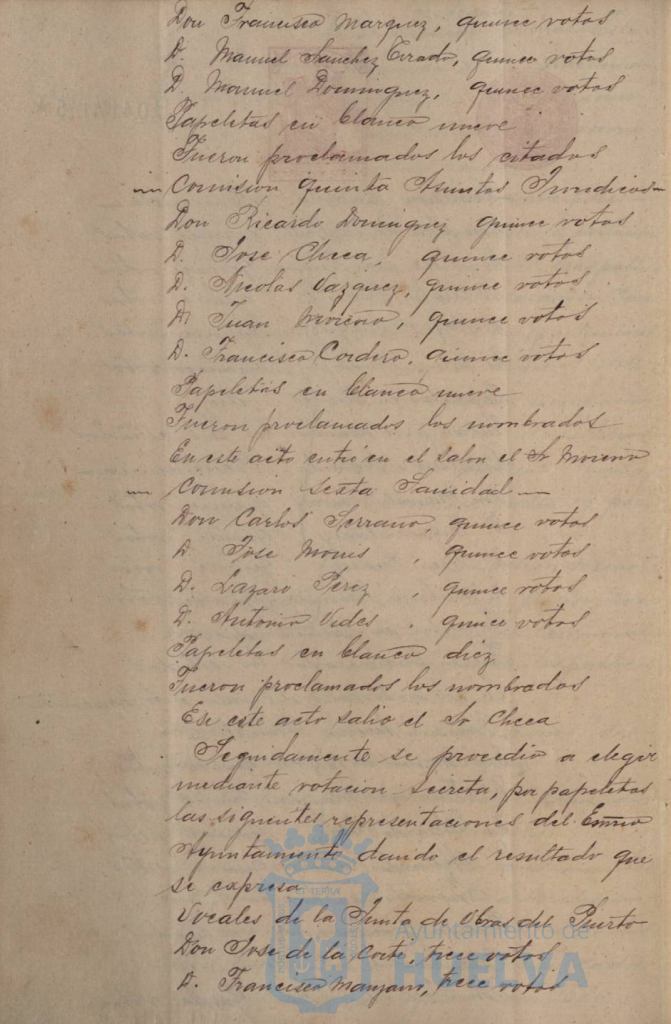 Don Francisco Marquez, quince votos
D. Manuel Sanchez Tirado, quince votos
D. Manuel Dominguez, quince votos
Papeletas en blanco nueve
Fueron proclamados los citados
Comision quinta Asuntos Juridicos
Don Ricardo Dominguez quince votos
D. Jose Checa, quince votos
D. Nicolás Vazquez, quince votos
D. Juan Moreno, quince votos
D. Francisco Cordero, quince votos
Papeletas en blanco nueve
Fueron proclamados los nombrados
En este acto entró en el salon el Sr Moreno
Comision sexta Sanidad
Don Carlos Serrano, quince votos
D Jose Mones, quince votos
D. Lazaro Perez, quince votos
D. Antonio Vides. quince votos
Papeletas en blanco diez
Fueron proclamados los nombrados
En este acto salio el Sr Checa
Seguidamente se procedio a elegir
mediante votacion secreta, por papeletas
las siguentes representaciones del Exmo
Ayuntamiento dando el resultado que
se expresa
Vocales de la Junta de Obras del Puerto
Don Jose de la Corte, trece votos
D. Francisco Manzano, trece votos
Ayuntamiento de
HUELVA